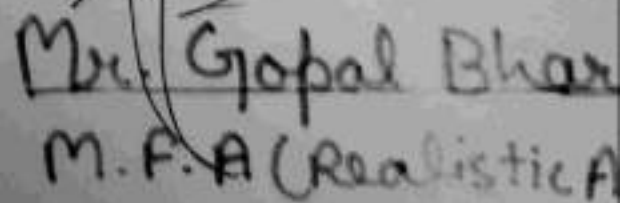 Mr. Gopal Bhar
M.F.A (Realistic A